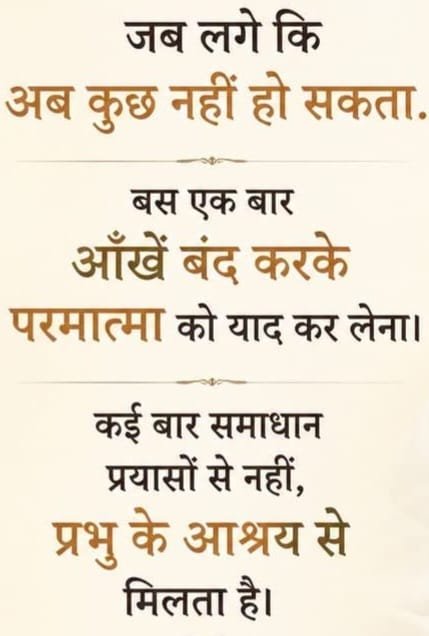 जब लगे कि
अब कुछ नहीं हो सकता.
बस एक बार
आँखें बंद करके
परमात्मा को याद कर लेना।
कई बार समाधान
प्रयासों से नहीं,
प्रभु के आश्रय से
मिलता है।